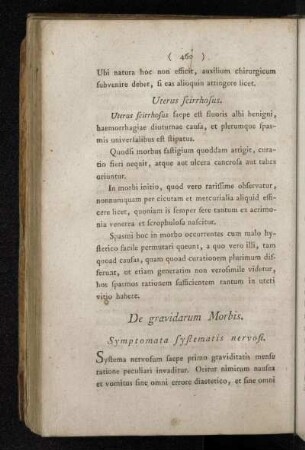 ( 460 )
Ubi natura hoc non efficit, auxilium chirurgicum
subvenire debet, si eas alioquin attingere licet.
Uterus scirrhosus.
Uterus scirrhosus saepe est fluoris albi benigni,
haemorrhagiae diuturnae causa, et plerumque spas-
mis universalibus est stipatus.
Quodsi morbus fastigium quoddam attigit, cu-
ratio fieri nequit, atque aut ulcera cancrosa aut tabes
oriuntur.
In morbi initio, quod vero rarissime observatur,
nonnunquam per cicutam et mercurialia aliquid effi-
cere licet, quoniam is semper fere tantum ex acrimo-
nia venerea et scrophulosa nascitur.
Spasmi hoc in morbo occurrentes cum malo hy-
sterico facile permutari queunt, a quo vero illi, tam
quoad causas, quam quoad curationem plurimum dif-
ferunt, ut etiam generatim non verosimile videtur,
hos spasmos rationem sufficientem tantum in uteri
vitio habere.
De gravidarum Morbis.
Symptomata systematis nervosi.
Systema nervosum saepe primo graviditatis mense
ratione peculiari invaditur. Oritur nimirum nausea
et vomitus sine omni errore diaetetico, et sine omni